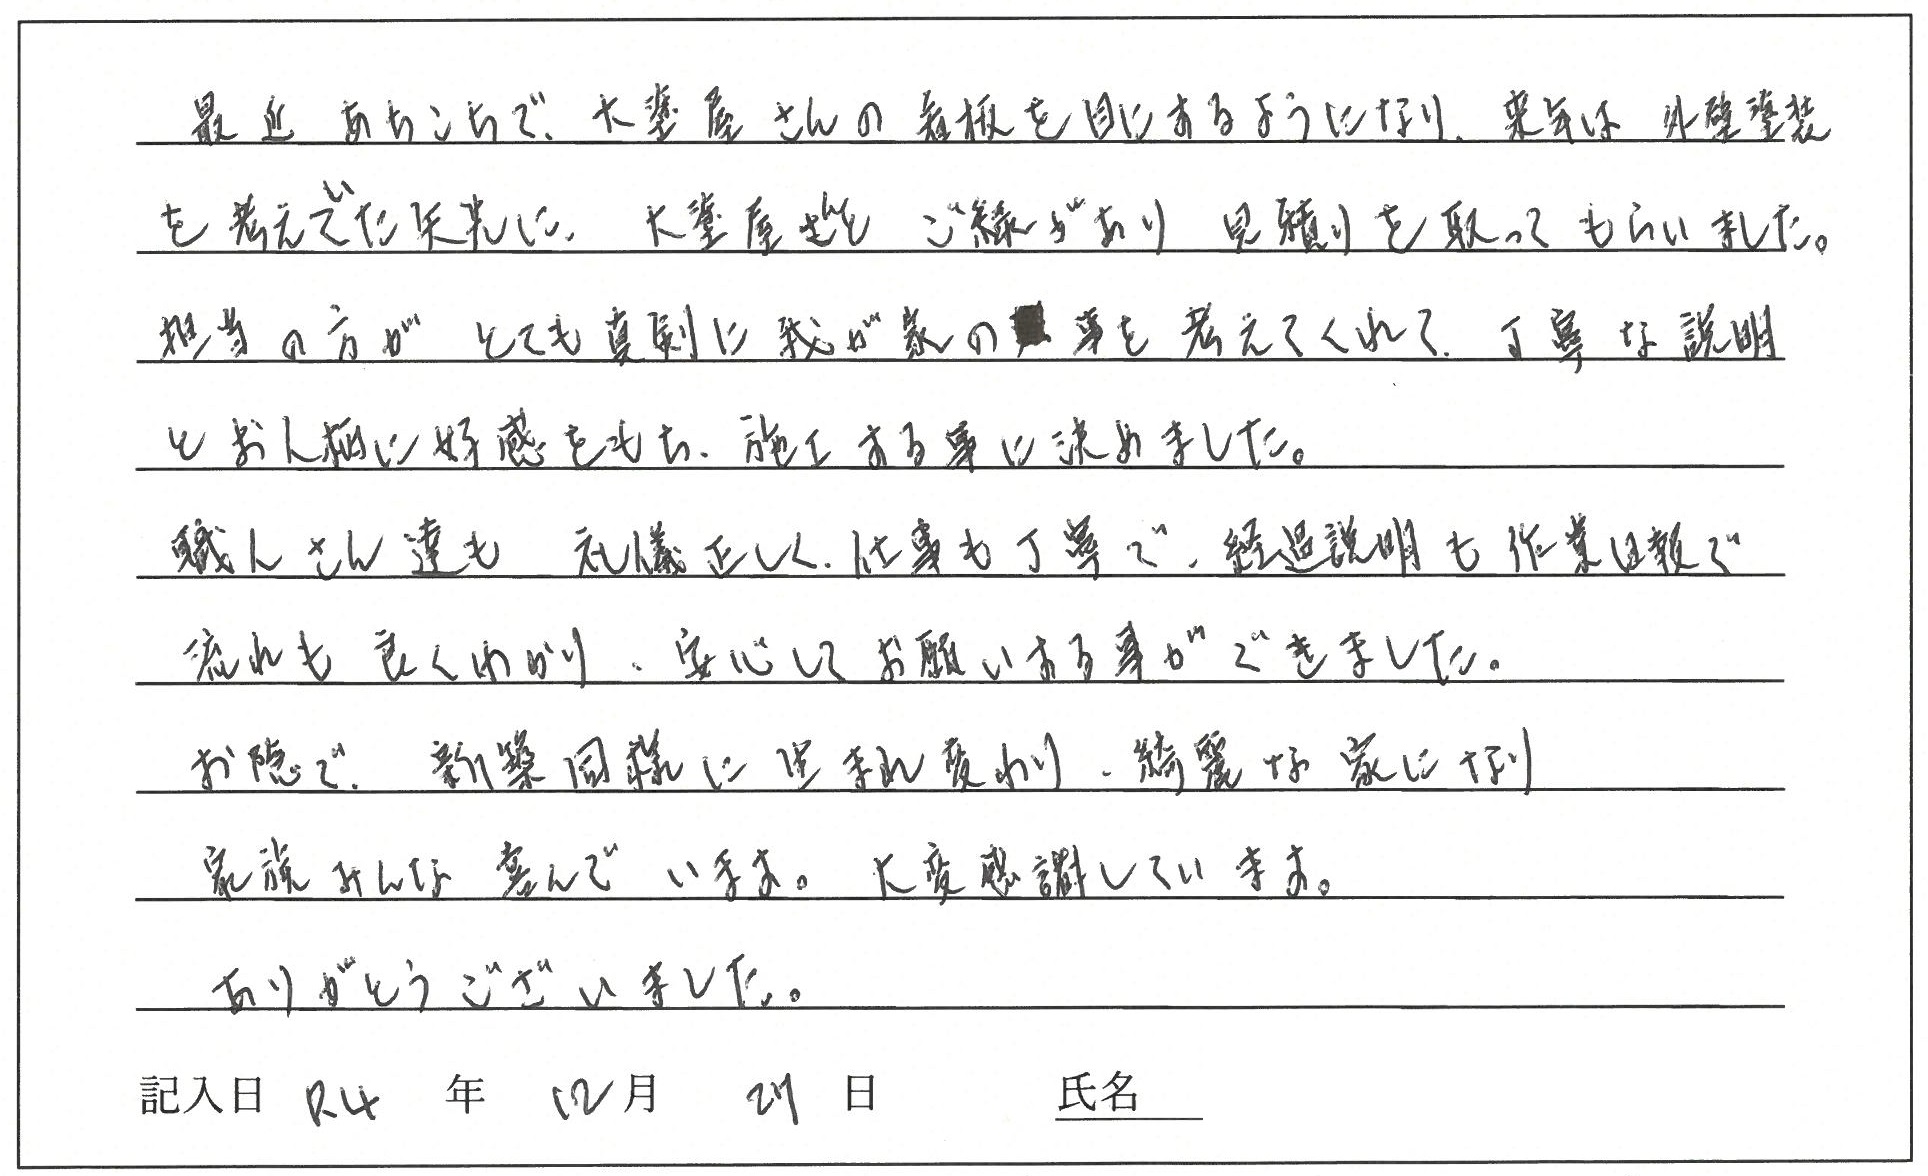 最近あちこちで、大塗屋さんの看板を目にするようになり、来年は外壁塗装
を考えていた矢先に、大塗屋さんと ご縁があり 見積りを取ってもらいました。
担当の方が とても真剣に我が家の 事を考えてくれて、丁寧な説明
とお人柄に好感をもち、施工する事に決めました。
職人さん達も 礼儀正しく、仕事も丁寧で、経過説明も作業日報で
流れも良くわかり、安心してお願いする事ができました。
お陰で、新築同様に生まれ変わり、綺麗な家になり
家族みんな喜んでいます。大変感謝しています。
ありがとうございました。
記入日 R4 年 12月 27日 氏名